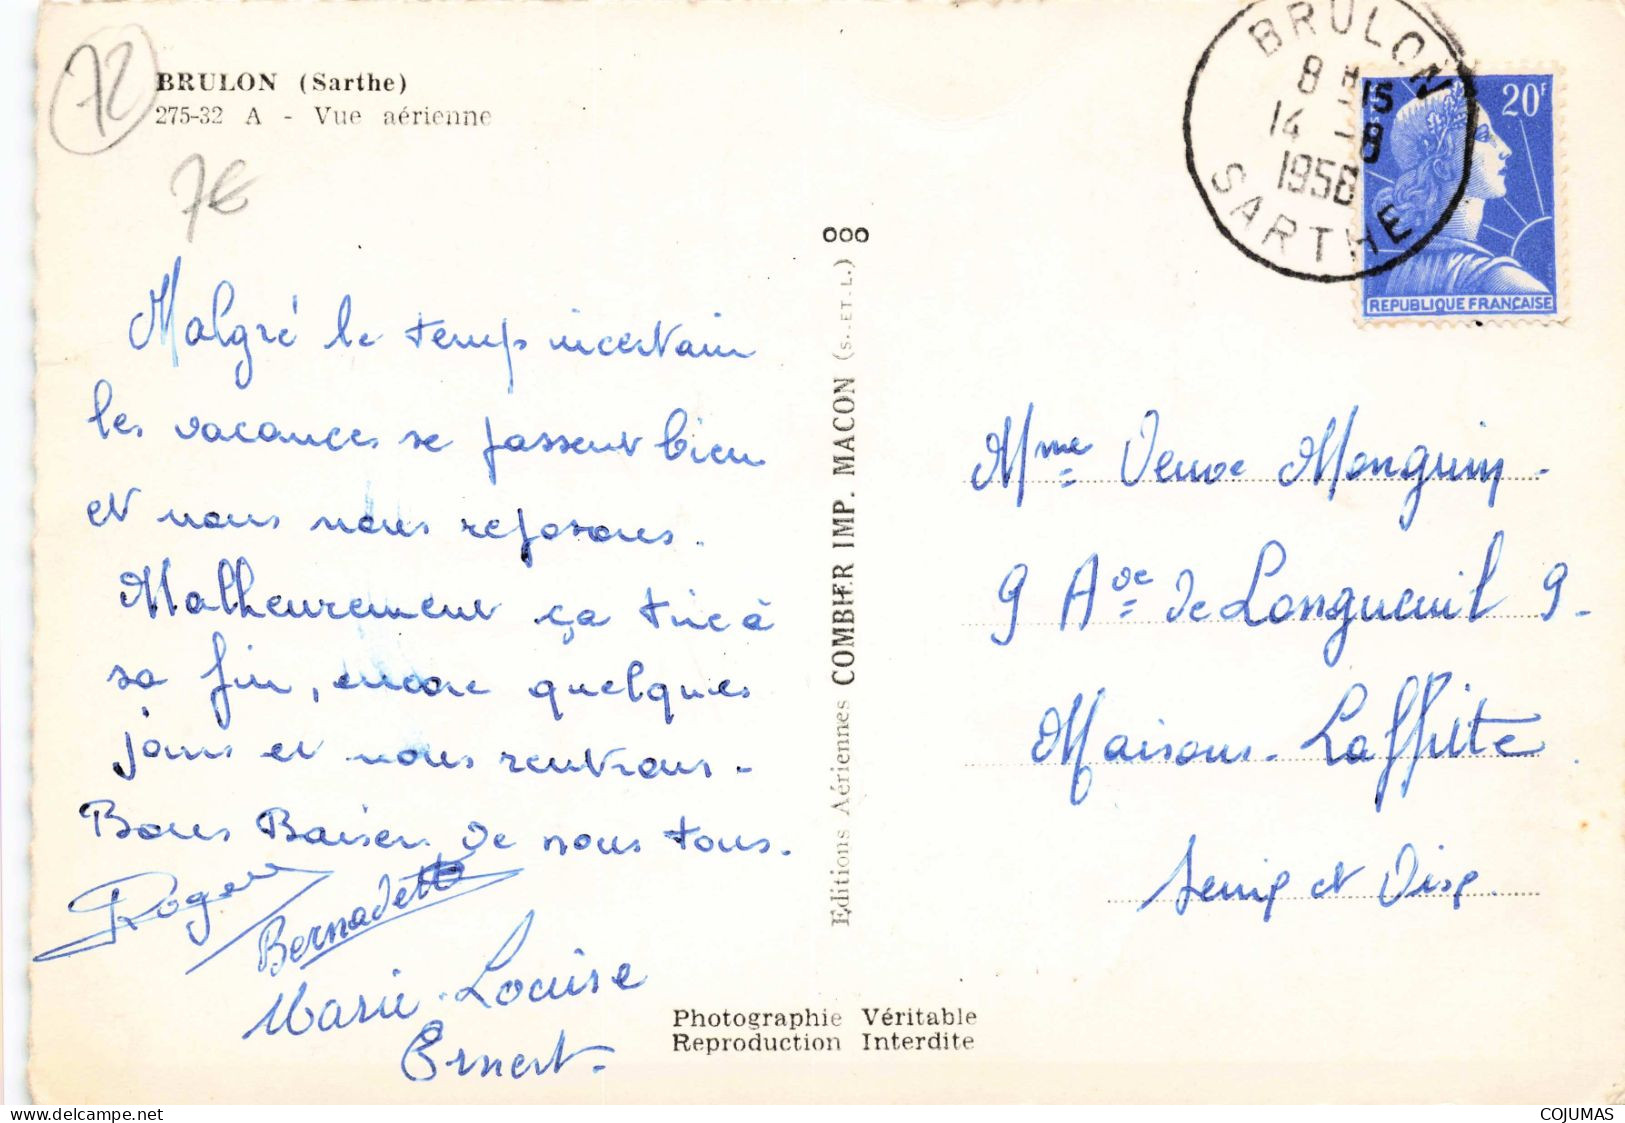 72
BRULON (Sarthe)
275-32 A - Vue aérienne
7€
Malgré le temps incertain
les vacances se passent bien
et nous nous reposons.
Malheureusement ça tire à
sa fin, encore quelques
jours et nous rentrons -
Bons Baisers de nous tous.
Roger
Bernadette
Marie-Louise
Ernest.
Editions Aériennes COMBIER IMP. MACON (S.-ET-L.) ooo
Photographie Véritable
Reproduction Interdite
BRULON
8 H 15
14 - 8
1958
SARTHE
20F
REPUBLIQUE FRANÇAISE
Mme Veuve Monguin -
9 Ave de Longueuil 9 -
Maisons-Laffitte
Seine et Oise.
delcampe.net
COJUMAS